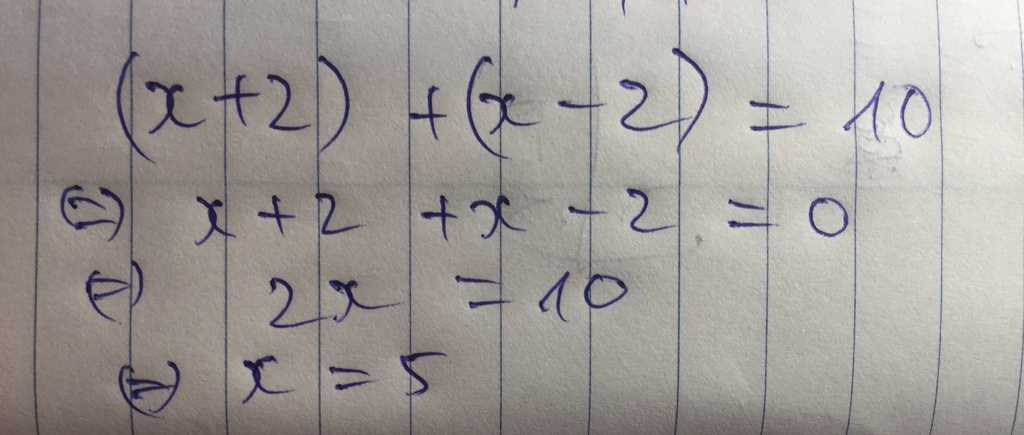 (x+2) + (x - 2) = 10
⇔ x + 2 + x - 2 = 0
⇔ 2x = 10
⇔ x = 5